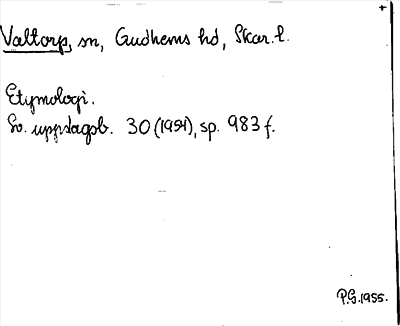 Valtorp, sn, Gudhems hd, Skar. l.
Etymologi.
Sv. uppslagsb. 30 (1954), sp. 983 f.
P.G. 1955.